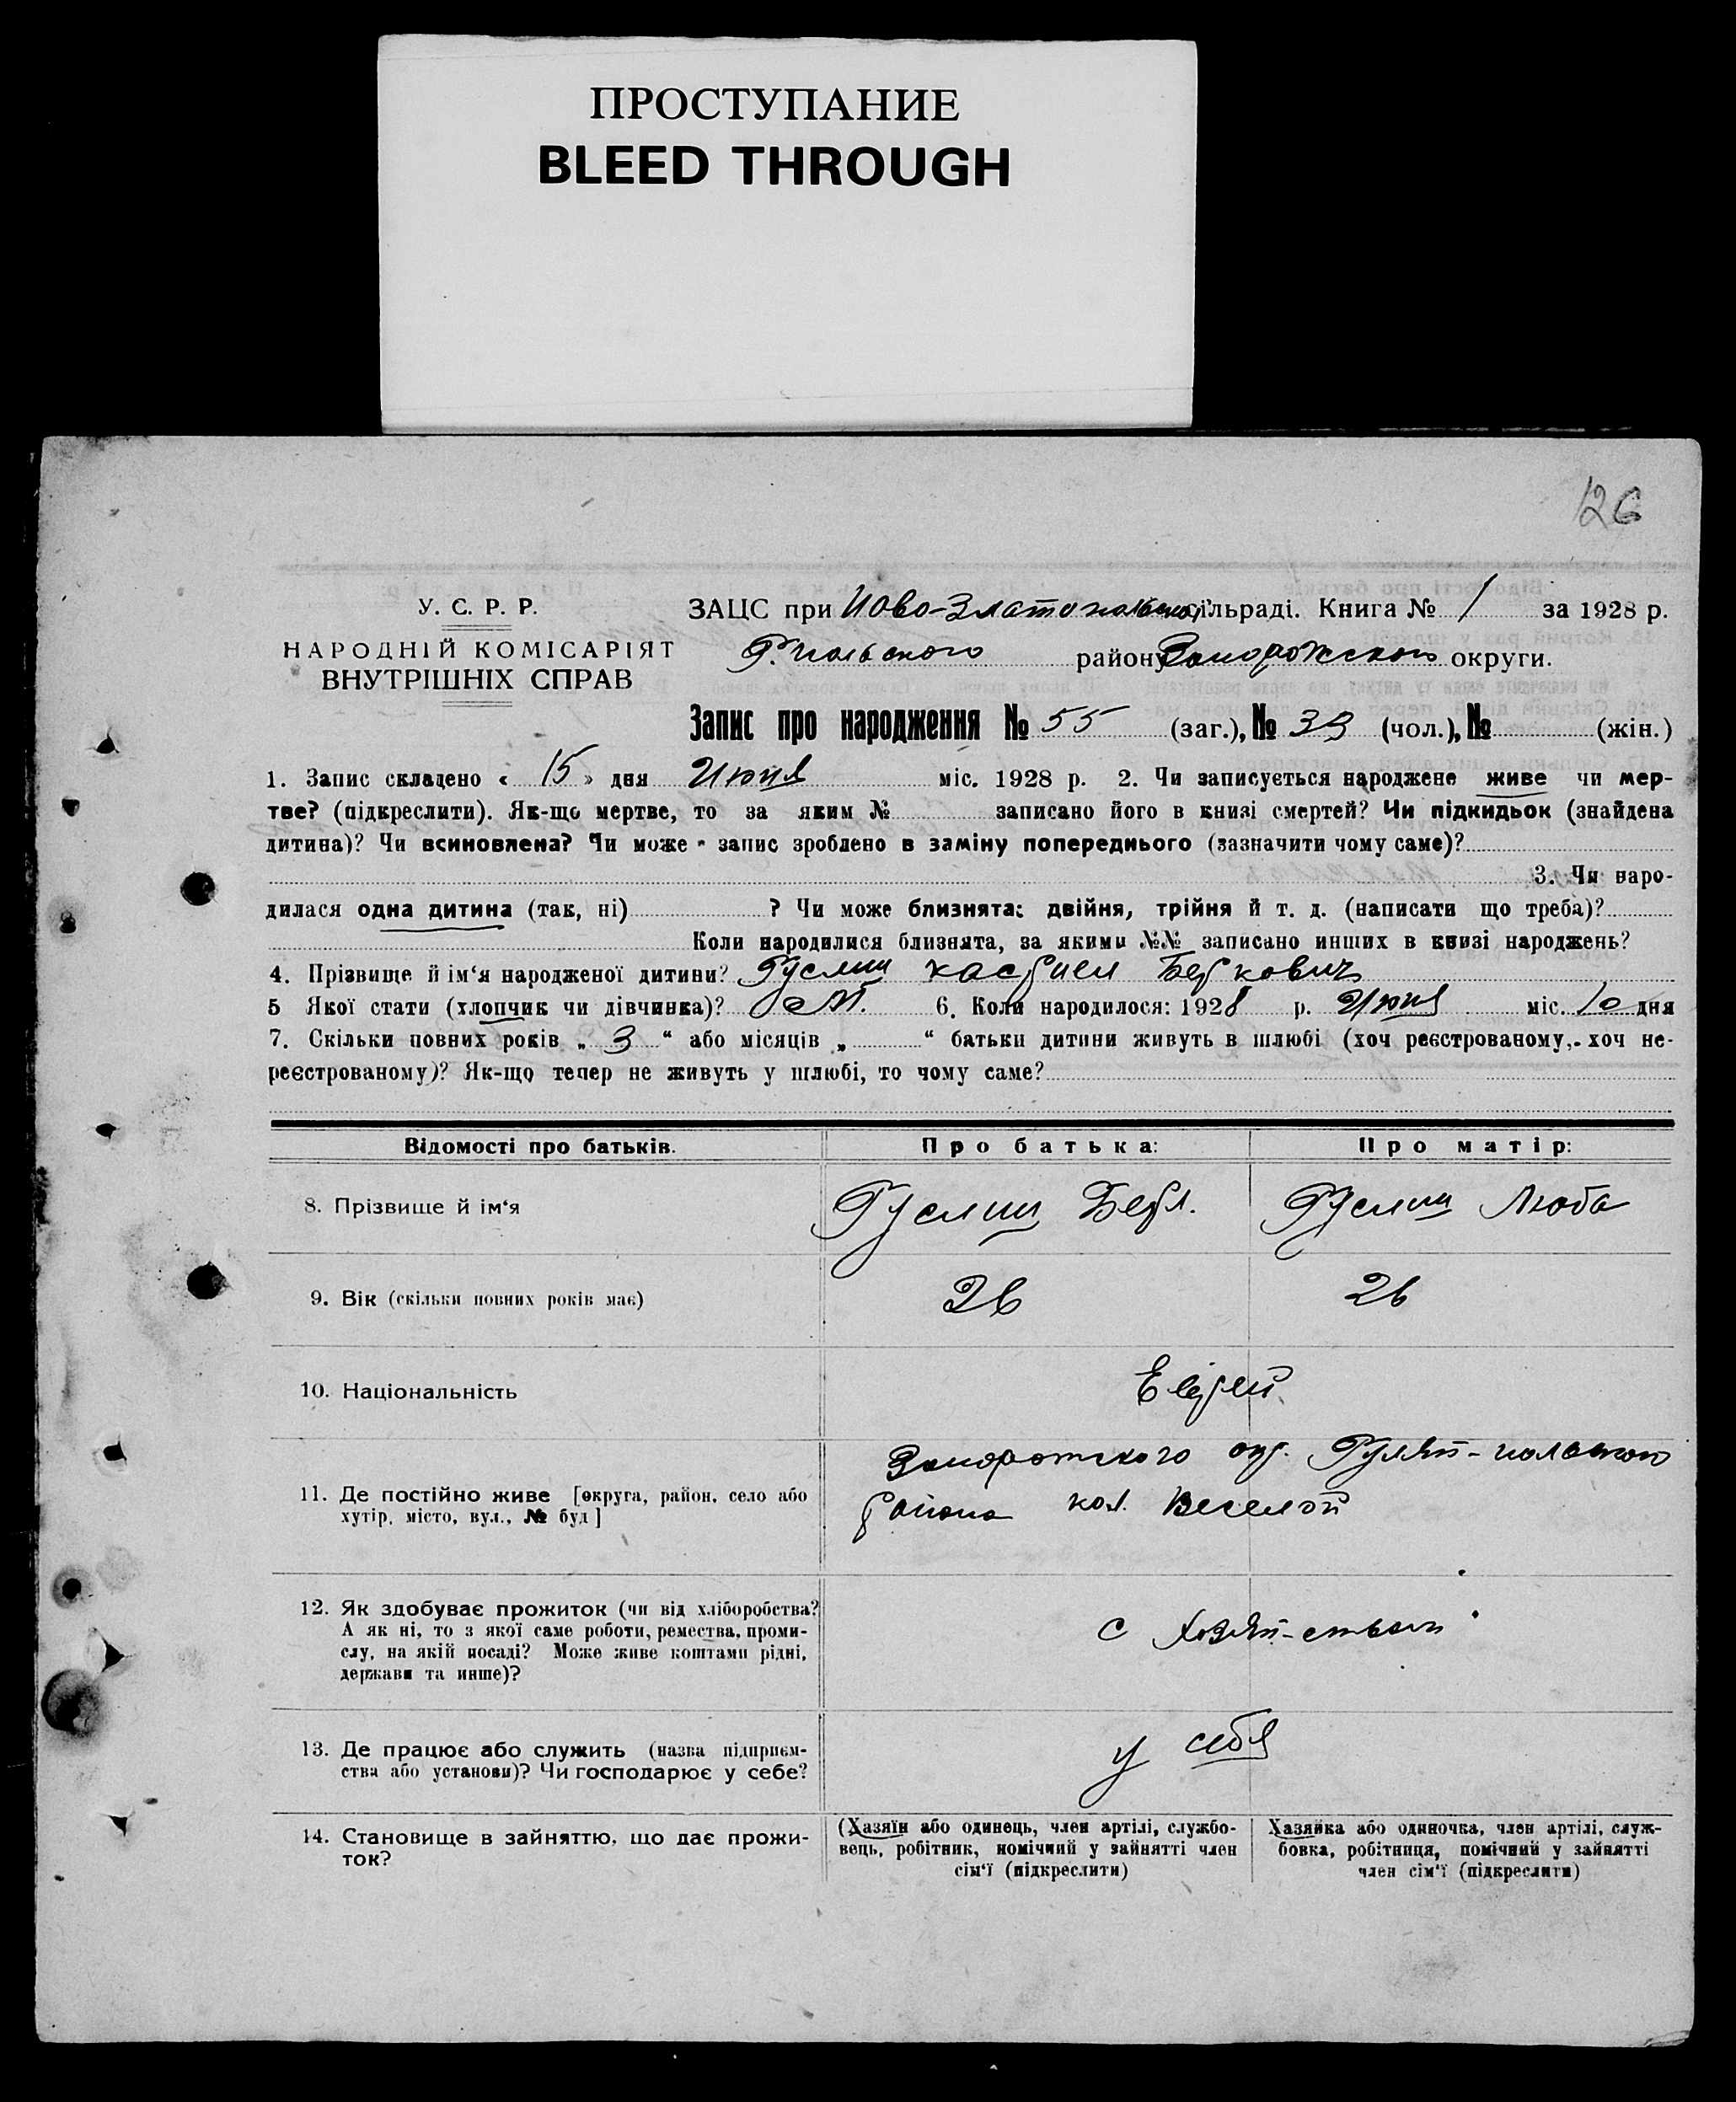 ПРОСТУПАНИЕ
BLEED THROUGH
126
У. С. Р. Р.
НАРОДНІЙ КОМІСАРІЯТ
ВНУТРІШНІХ СПРАВ
ЗАЦС при Ново-Златопольской сільраді. Книга № 1 за 1928 р.
Г.польского району Запорожской округи.
Запис про народження № 55 (заг.), № 33 (чол.), № (жін.)
1. Запис складено « 15 » дня Июня міс. 1928 р. 2. Чи записується народжене живе чи мер-
тве? (підкреслити). Як-що мертве, то за яким № записано його в книзі смертей? Чи підкидьок (знайдена
дитина)? Чи всиновлена? Чи може запис зроблено в заміну попереднього (зазначити чому саме)?
3. Чи наро-
дилася одна дитина (так, ні) ? Чи може близнята: двійня, трійня й т. д. (написати що треба)?
Коли народилися близнята, за якими №№ записано инших в книзі народжень?
4. Прізвище й ім‘я народженої дитини? Беркович
5 Якої стати (хлопчик чи дівчинка)? М. 6. Коли народилося: 1928 р. Июня міс. 10 дня
7. Скільки повних років „ 3 “ або місяців „ “ батьки дитини живуть в шлюбі (хоч реєстрованому, хоч не-
реєстрованому)? Як-що тепер не живуть у шлюбі, то чому саме?
Відомості про батьків. Про батька: Про матір:
8. Прізвище й ім‘я Люба
9. Вік (скільки повних років має) 26 26
10. Національність Еврей
11. Де постійно живе [округа, район, село або
хутір, місто, вул., № буд]
Запорожского окр. Гуляй-польского
района кол. Веселой
12. Як здобуває прожиток (чи від хліборобства?
А як ні, то з якої саме роботи, ремества, проми-
слу, на якій посаді? Може живе коштами рідні,
держави та инше)?
с Хозяй-ства
13. Де працює або служить (назва підприєм-
ства або установи)? Чи господарює у себе?
у себя
14. Становище в зайняттю, що дає прожи-
ток?
(Хазяїн або одинець, член артілі, службо-
вець, робітник, помічний у зайнятті член
сім‘ї (підкреслити)
Хазяйка або одиночка, член артілі, служ-
бовка, робітниця, помічний у зайнятті
член сім‘ї (підкреслити)